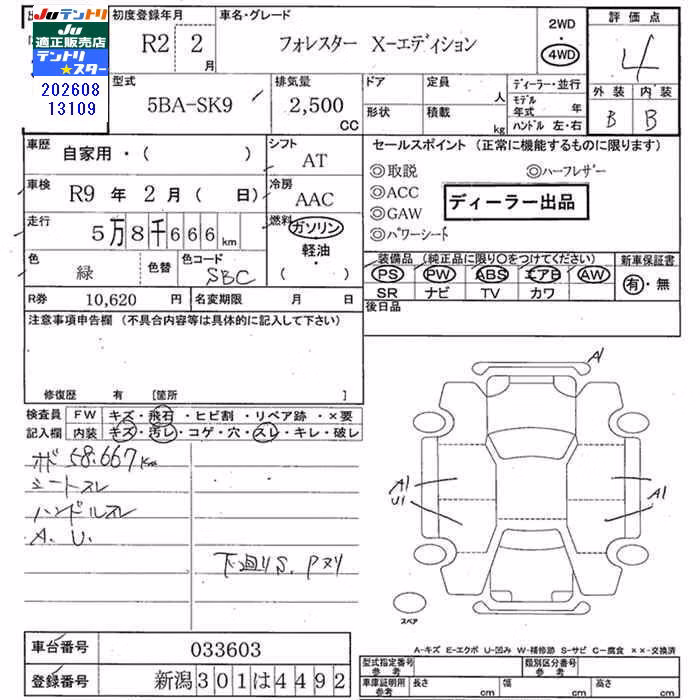 Juテントリ
Ju適正販売店
テントリ★スター
202608
13109
初度登録年月
R2 2
月
車名・グレード
フォレスター X-エディション
2WD
・
4WD
評価点
4
外装 内装
B B
型式
5BA-SK9
排気量
2,500
CC
ドア
形状
定員
人
積載
kg
ディーラー・並行
モデル
年式 年
ハンドル 左・右
車歴 自家用・( )
シフト AT
車検 R9 年 2 月 ( 日)
冷房 AAC
走行 5万8千666km
燃料 ガソリン
軽油・
( )
色 緑 色替
色コード SBC
R券 10,620 円 名変期限 月 日
セールスポイント (正常に機能するものに限ります)
◎取説 ◎ハーフレザー
◎ACC
◎GAW
◎パワーシート
ディーラー出品
装備品 (純正品に限り○をつけてください) 新車保証書
PS PW ABS エアB AW
SR ナビ TV カワ
有・無
後日品
注意事項申告欄 (不具合内容等は具体的に記入して下さい)
修復歴 有 [箇所 ]
検査員 FW キズ・飛石・ヒビ割・リペア跡・×要
記入欄 内装 キズ・汚レ・コゲ・穴・スレ・キレ・破レ
ボ 58.667Km
シートスレ
ハンドルスレ
A. U.
下廻りS. Pヌリ
A1
A1
U1
A1
スペア
車台番号 033603
登録番号 新潟301は4492
A-キズ E-エクボ U-凹み W-補修跡 S-サビ C-腐食 ××-交換済
型式指定番号
参考
類別区分番号
参考
車庫証明用
参考
長さ cm 幅 cm 高さ cm